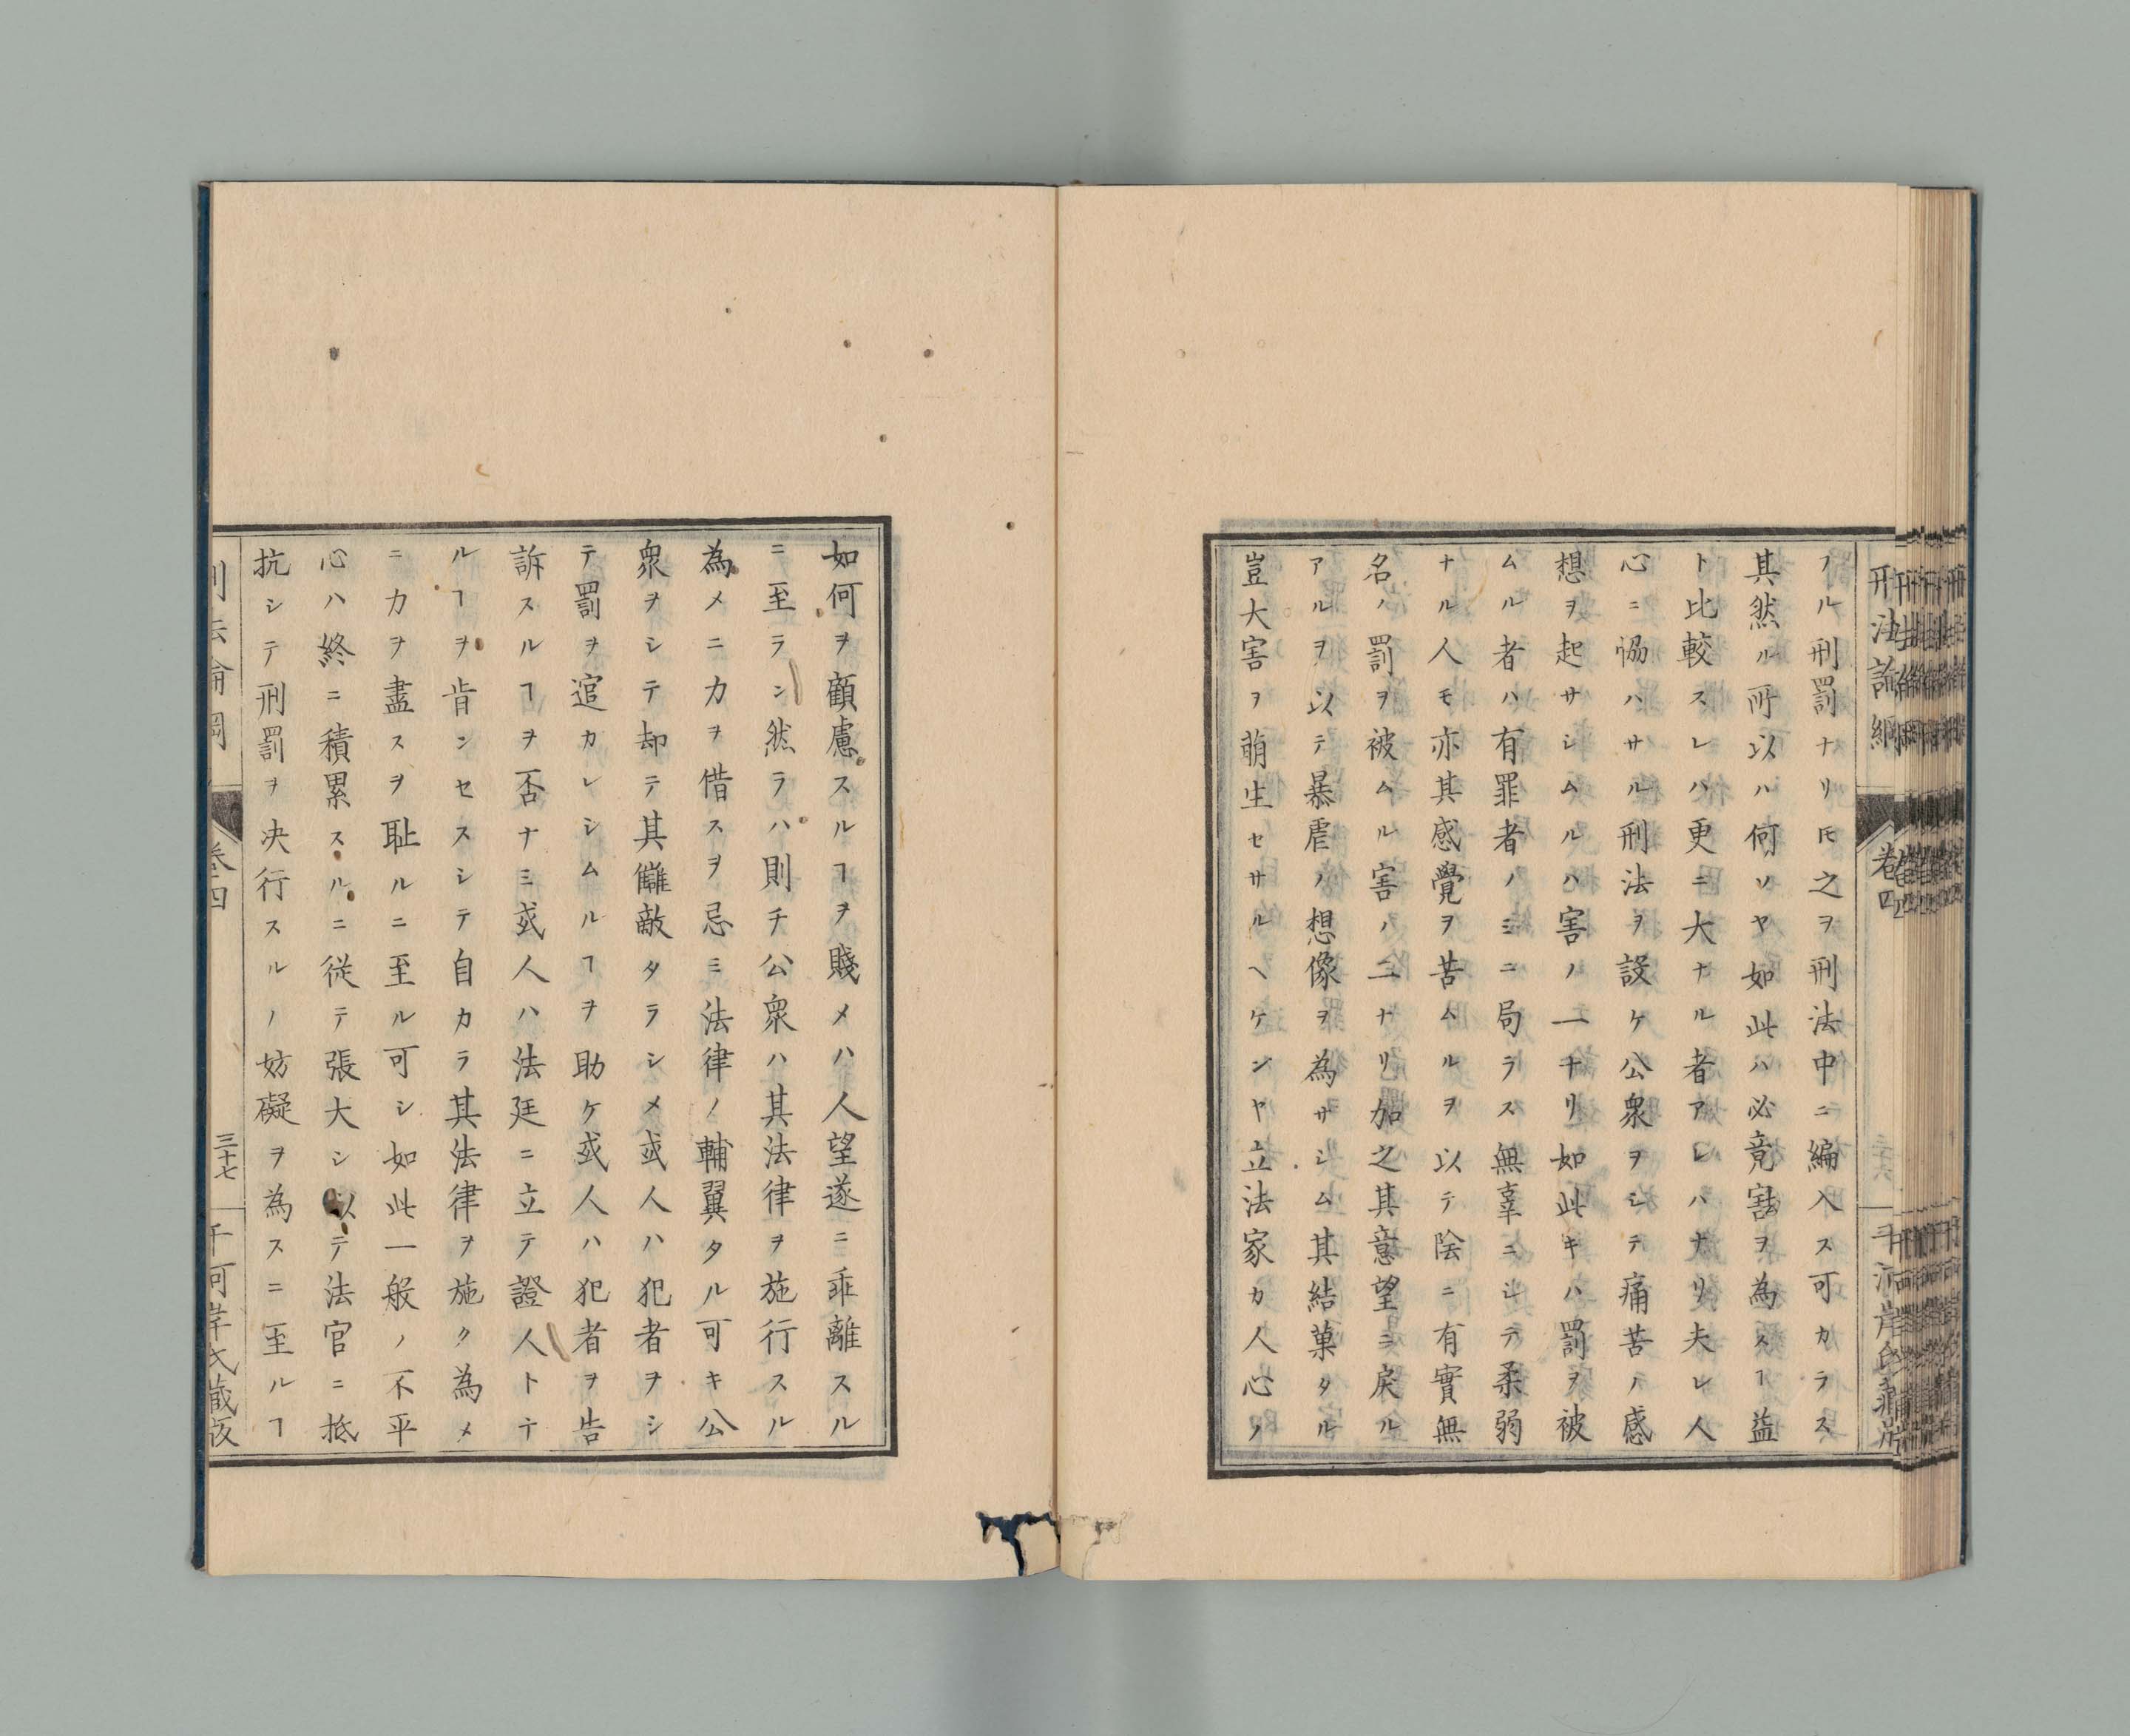 刑法論綱
卷四
ノル刑罰ナリ𪜈之ヲ刑法中ニ編入ス可カラス
其然ル所以ハ何ソヤ如此ハ必竟害ヲ為スヿ益
ト比較スレハ更ニ大ナル者アレハナリ夫レ人
心ニ恊ハサル刑法ヲ設ケ公衆ヲシテ痛苦ノ感
想ヲ起サシムルハ害ノ一ナリ如此キハ罰ヲ被
ムル者ハ有罪者ノミニ局ラス無辜ニシテ柔弱
ナル人モ亦其感覺ヲ苦ムルヲ以テ陰ニ有實無
名ノ罰ヲ被ムル害ノ二ナリ加之其意望ニ戻ル
アルヲ以テ暴虐ノ想像ヲ為サシム其結菓タル
豈大害ヲ萠生セサルヘケンヤ立法家カ人心ノ
如何ヲ顧慮スルヿヲ賤メハ人望遂ニ乖離スル
ニ至ラン然ラハ則チ公衆ハ其法律ヲ施行スル
為メニ力ヲ借スヲ忌ミ法律ノ輔翼タル可キ公
衆ヲシテ却テ其讎敵タラシメ或人ハ犯者ヲシ
テ罰ヲ逭カレシムルヿヲ助ケ或人ハ犯者ヲ告
訴スルヿヲ否ナミ或人ハ法廷ニ立テ證人トナ
ルヿヲ肯ンセスシテ自カラ其法律ヲ施ク為メ
ニ力ヲ盡スヲ耻ルニ至ル可シ如此一般ノ不平
心ハ終ニ積累スルニ従テ張大シ以テ法官ニ抵
抗シテ刑罰ヲ决行スルノ妨礙ヲ為スニ至ルヿ
刑法論綱
卷四
三十七
千河岸氏藏版